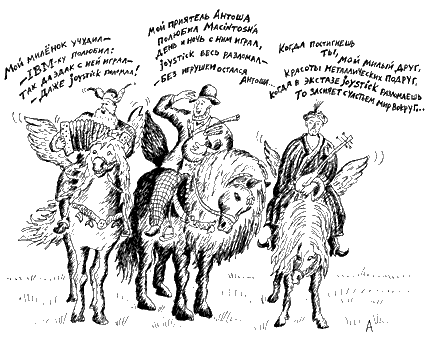 Мой милёнок учудил –
– IBM-ку полюбил:
Так да эдак с ней играл –
– Даже Joystick поломал!
Мой приятель Антоша
полюбил Macintosh'а
День и ночь с ним играл,
Joystick весь разломал –
– Без игрушки остался
Антоша...
Когда постигнешь
ты,
мой милый друг,
красоты металлических подруг,
Когда в экстазе Joystick разломаешь
То засияет счастьем мир вокруг...
А